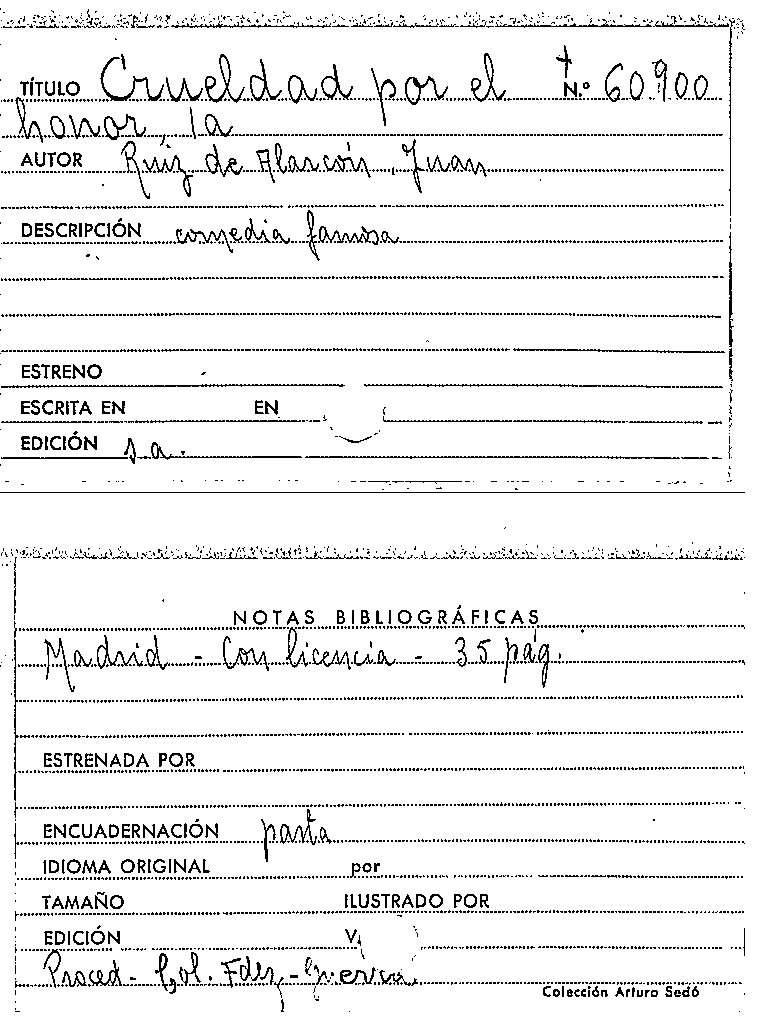 TÍTULO Crueldad por el + N.º 60.900
honor, la
AUTOR Ruiz de Alarcón, Juan
DESCRIPCIÓN comedia famosa
ESTRENO
ESCRITA EN EN
EDICIÓN s.a.
NOTAS BIBLIOGRÁFICAS
Madrid - Con licencia - 35 pág.
ESTRENADA POR
ENCUADERNACIÓN pasta
IDIOMA ORIGINAL por
TAMAÑO ILUSTRADO POR
EDICIÓN V.
Proced - Col. Fdez - Guerra.
Colección Arturo Sedó